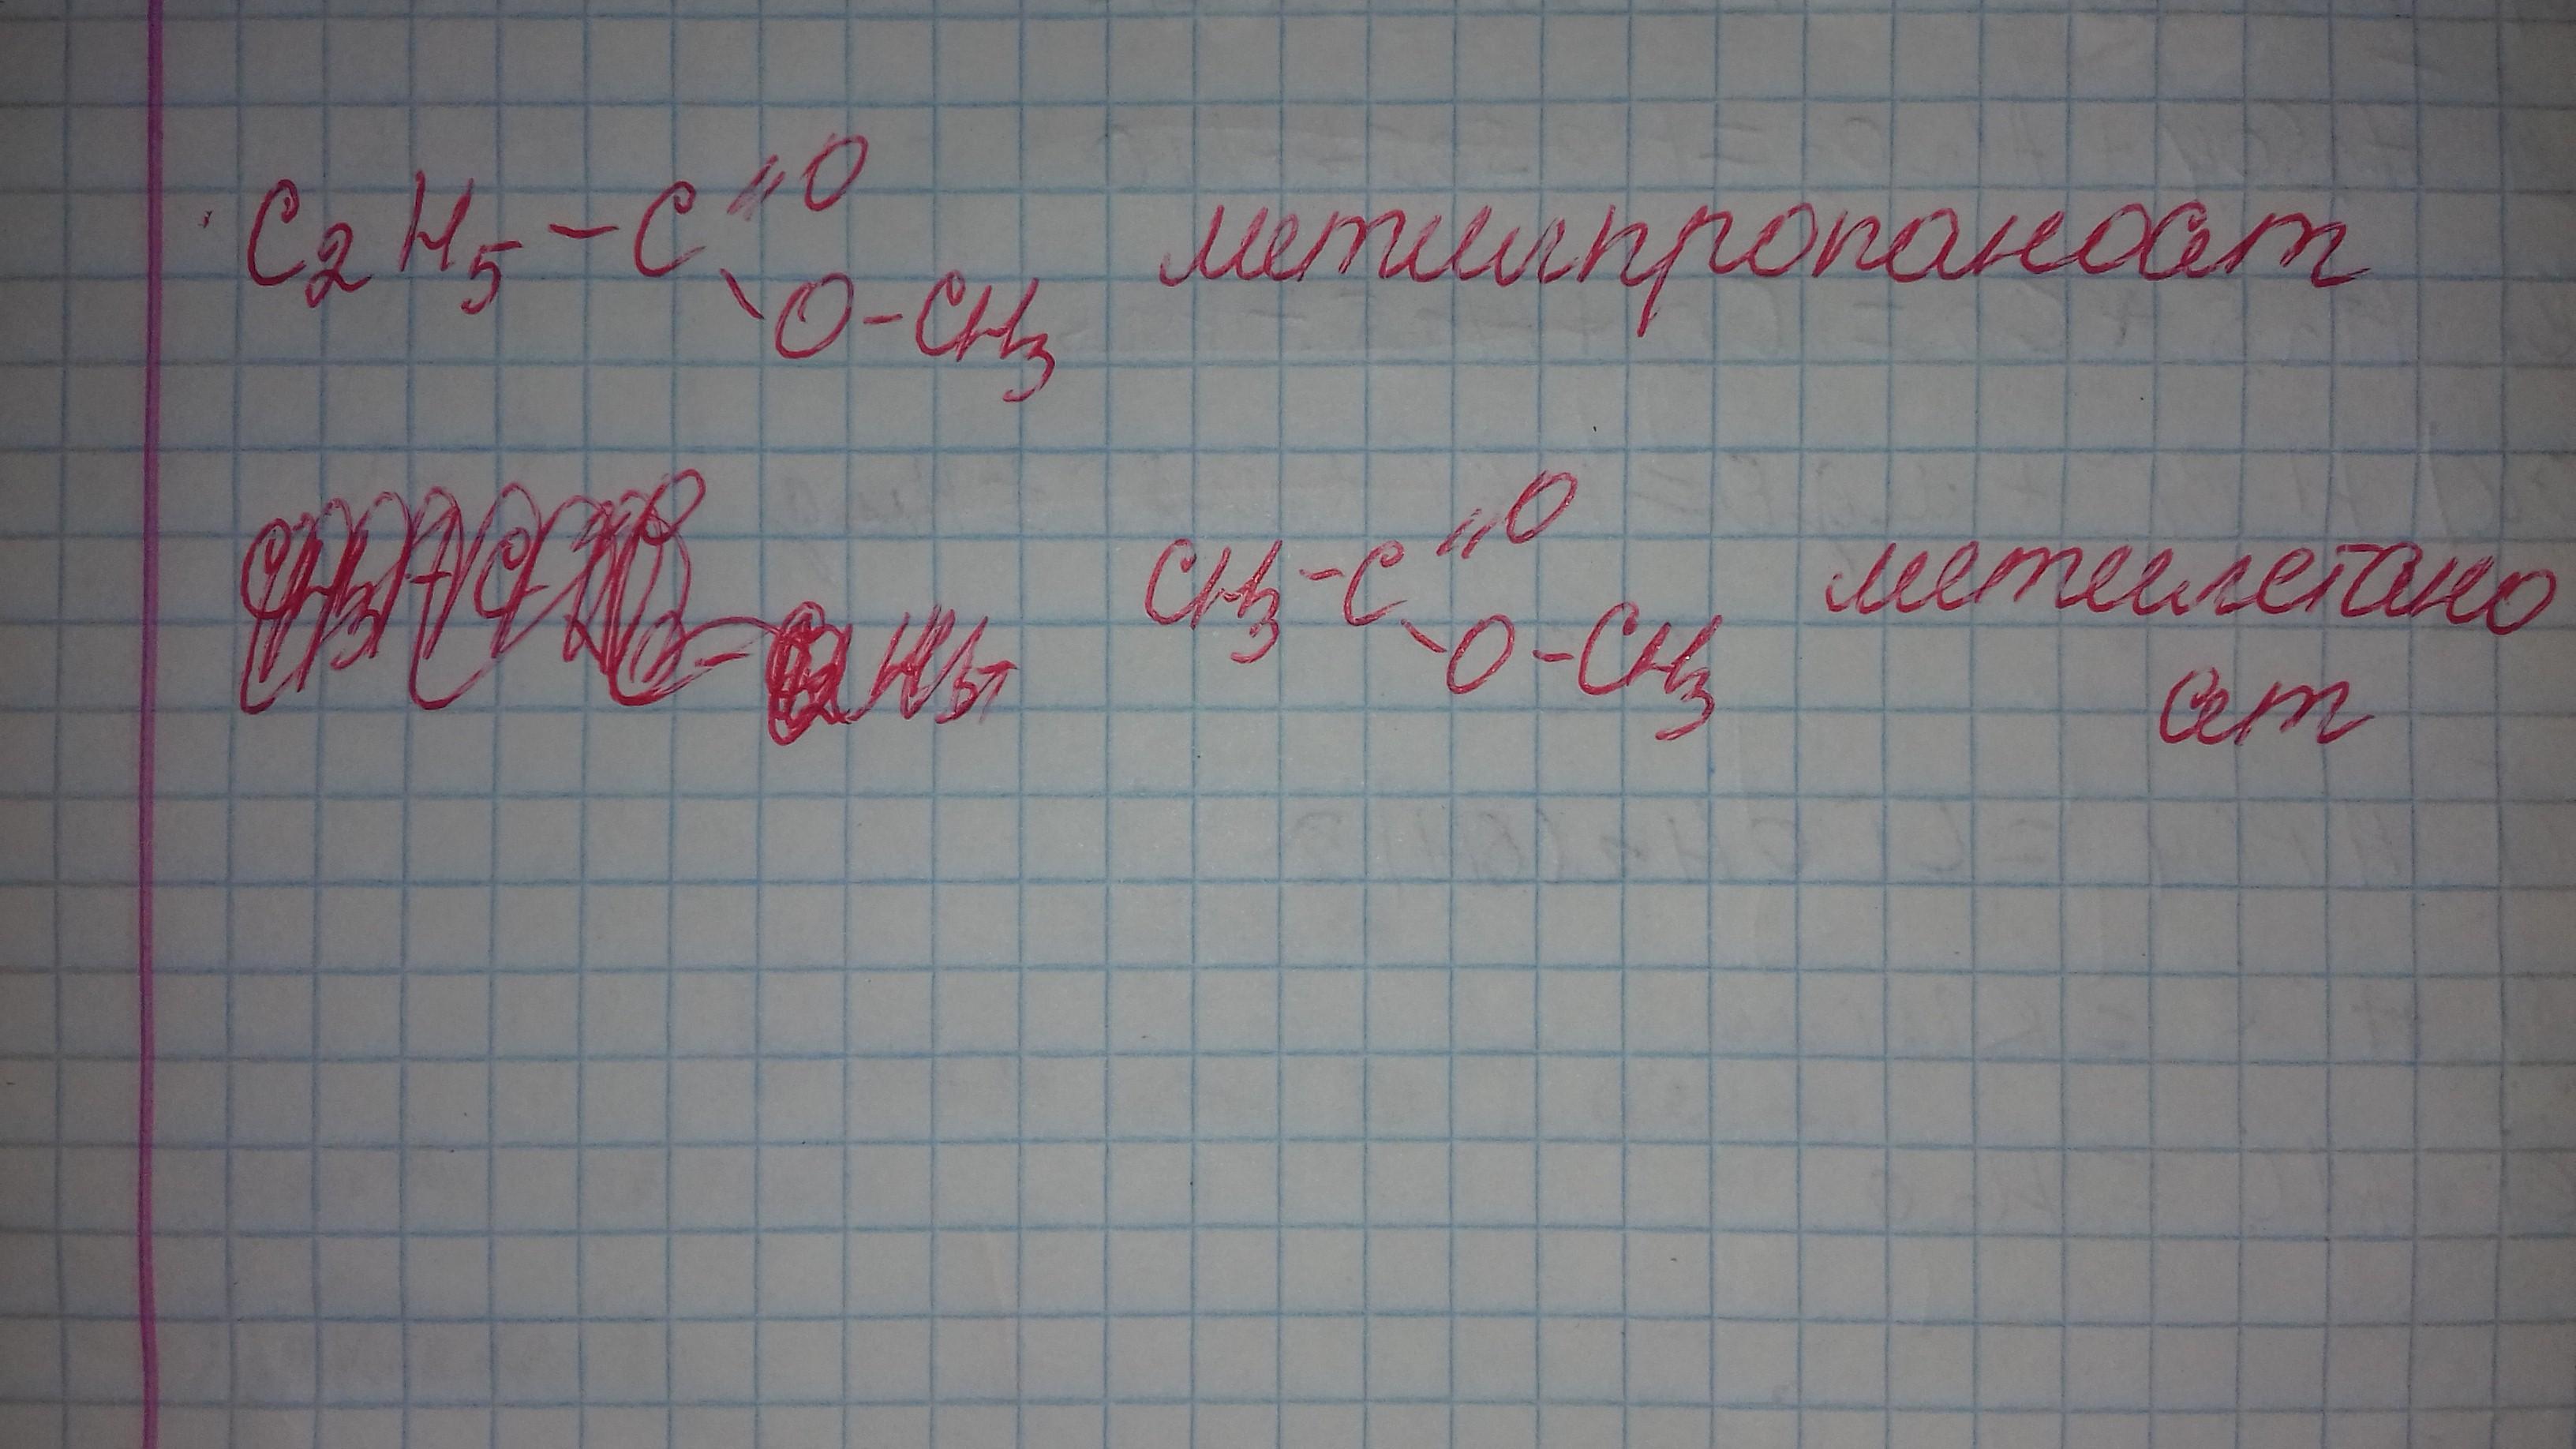 C2H5-C=O
O-CH3 метилпропаноат
CH3-C=O
O-CH3 метилетано
ат